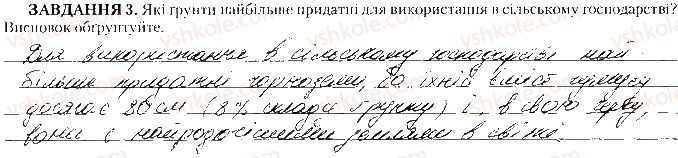 ЗАВДАННЯ 3. Які ґрунти найбільше придатні для використання в сільському господарстві?
Висновок обґрунтуйте.
Для використання в сільському господарстві най
більше придатні чорноземи, бо їхній вміст гумусу
досягає 80 см (8% склади ґрунту) і, в свою чергу,
вони є найродючішими землями в світі.